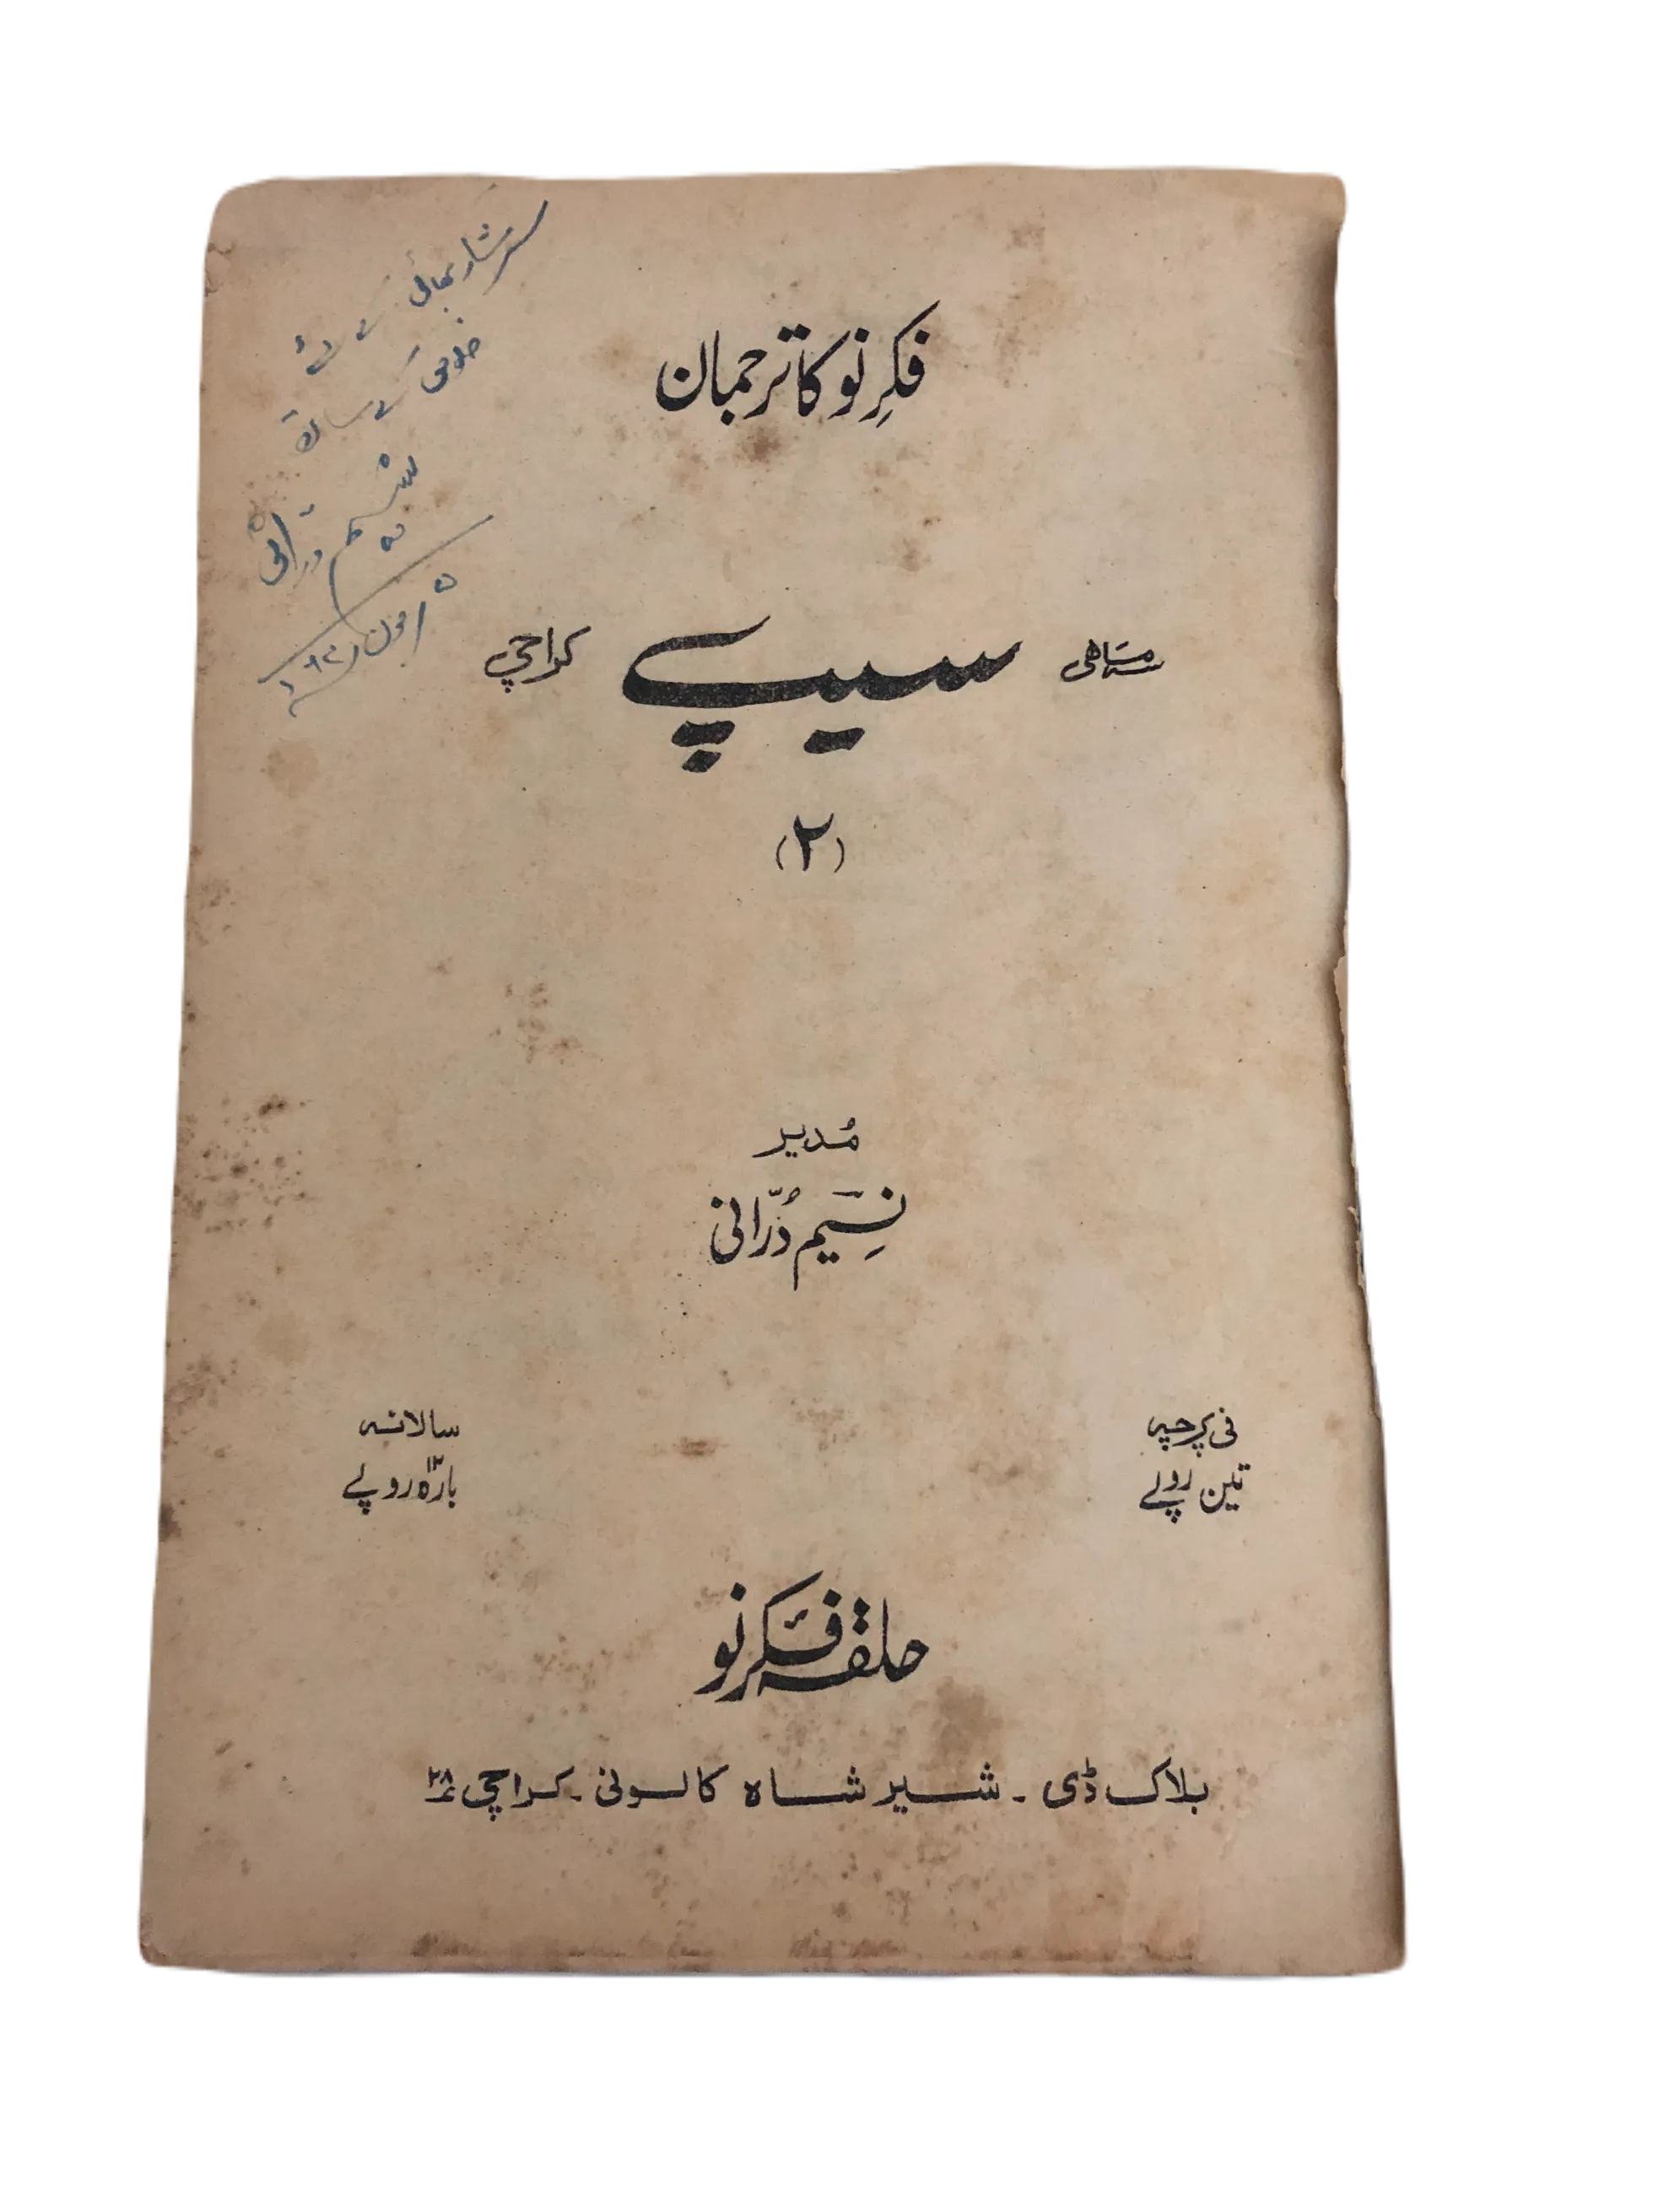 سرشار بھائی کے لئے
خلوص کے ساتھ
نسیم درانی
فکرِ نو کا ترجمان
سہ ماہی سیپ کراچی
(۲)
مُدیر
نسِیم دُرّانی
فی پرچہ
تین روپے
سالانہ
بارہ ۱۲ روپے
حلقۂ فکرِ نو
بلاک ڈی ۔ شیر شاہ کالونی ۔ کراچی ۲۸